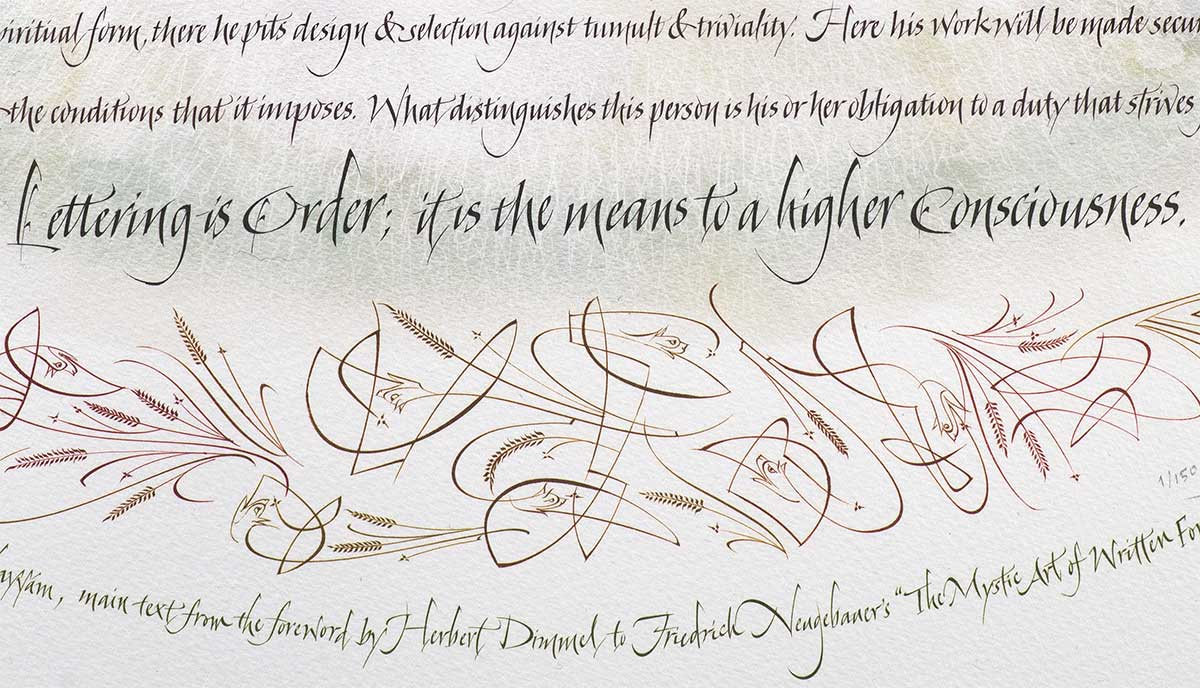 spiritual form, there he pits design & selection against tumult & triviality. Here his work will be made secu
the conditions that it imposes. What distinguishes this person is his or her obligation to a duty that strives
Lettering is Order; it is the means to a higher Consciousness.
1/150
ayyám, main text from the foreword by Herbert Dimmel to Friedrich Neugebauer's "The Mystic Art of Written For